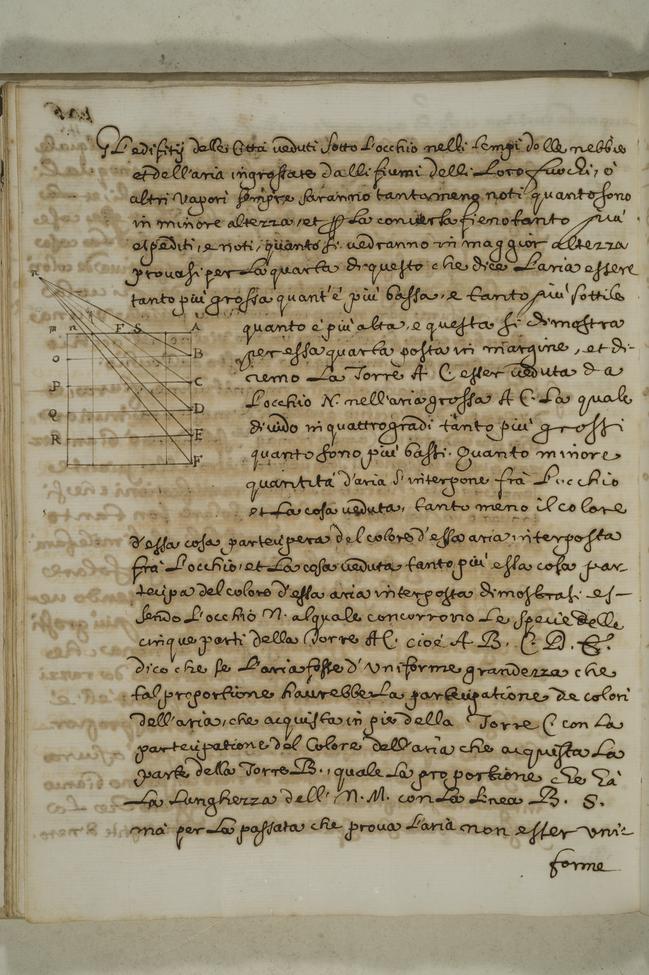 Gl'edifitij delle Città ueduti sotto l'occhio nelli tempi delle nebbie
et dell'aria ingrossate dalli fiumi delli Loro fuochi, ò
altri Vapori sempre saranno tanto meno noti quanto sono
in minore altezza, et per La conuersa fieno tanto più
espediti, e noti, quanto si uedranno in maggior altezza
prouasi per La quarta di questo che dice L'aria essere
tanto più grossa quant'è più bassa, e tanto più sottile
quanto è più alta, e questa si dimostra
per essa quarta posta in margine, et di-
remo La Torre A C esser ueduta da
Locchio N. nell'aria grossa A C. La quale
diuido in quattro gradi tanto più grossi
quanto sono più bassi. Quanto minore
quantità d'aria s'interpone frà L'occhio
et La cosa ueduta, tanto meno il colore
d'essa cosa parteciperà del colore d'essa aria interposta
frà L'occhio, et La cosa ueduta tanto più essa cosa par-
tecipa del colore d'essa aria interposta dimostrasi es-
sendo L'occhio N. al quale concorrono Le spetie delle
cinque parti della Torre AC. cioè A. B. C. D. E.
dico che se L'aria fosse d'uniforme grandezza che
tal proportione haurebbe La partecipatione de colori
dell'aria, che acquista in piè della Torre C con La
partecipatione del Colore dell'aria che acquista La
parte della Torre B., quale La proportione che hà
La Lunghezza dell' N. M. con La Linea B. S.
mà per La passata che proua L'aria non esser uni-
forme
n
m n F S A
o B
P C
Q D
R E
F